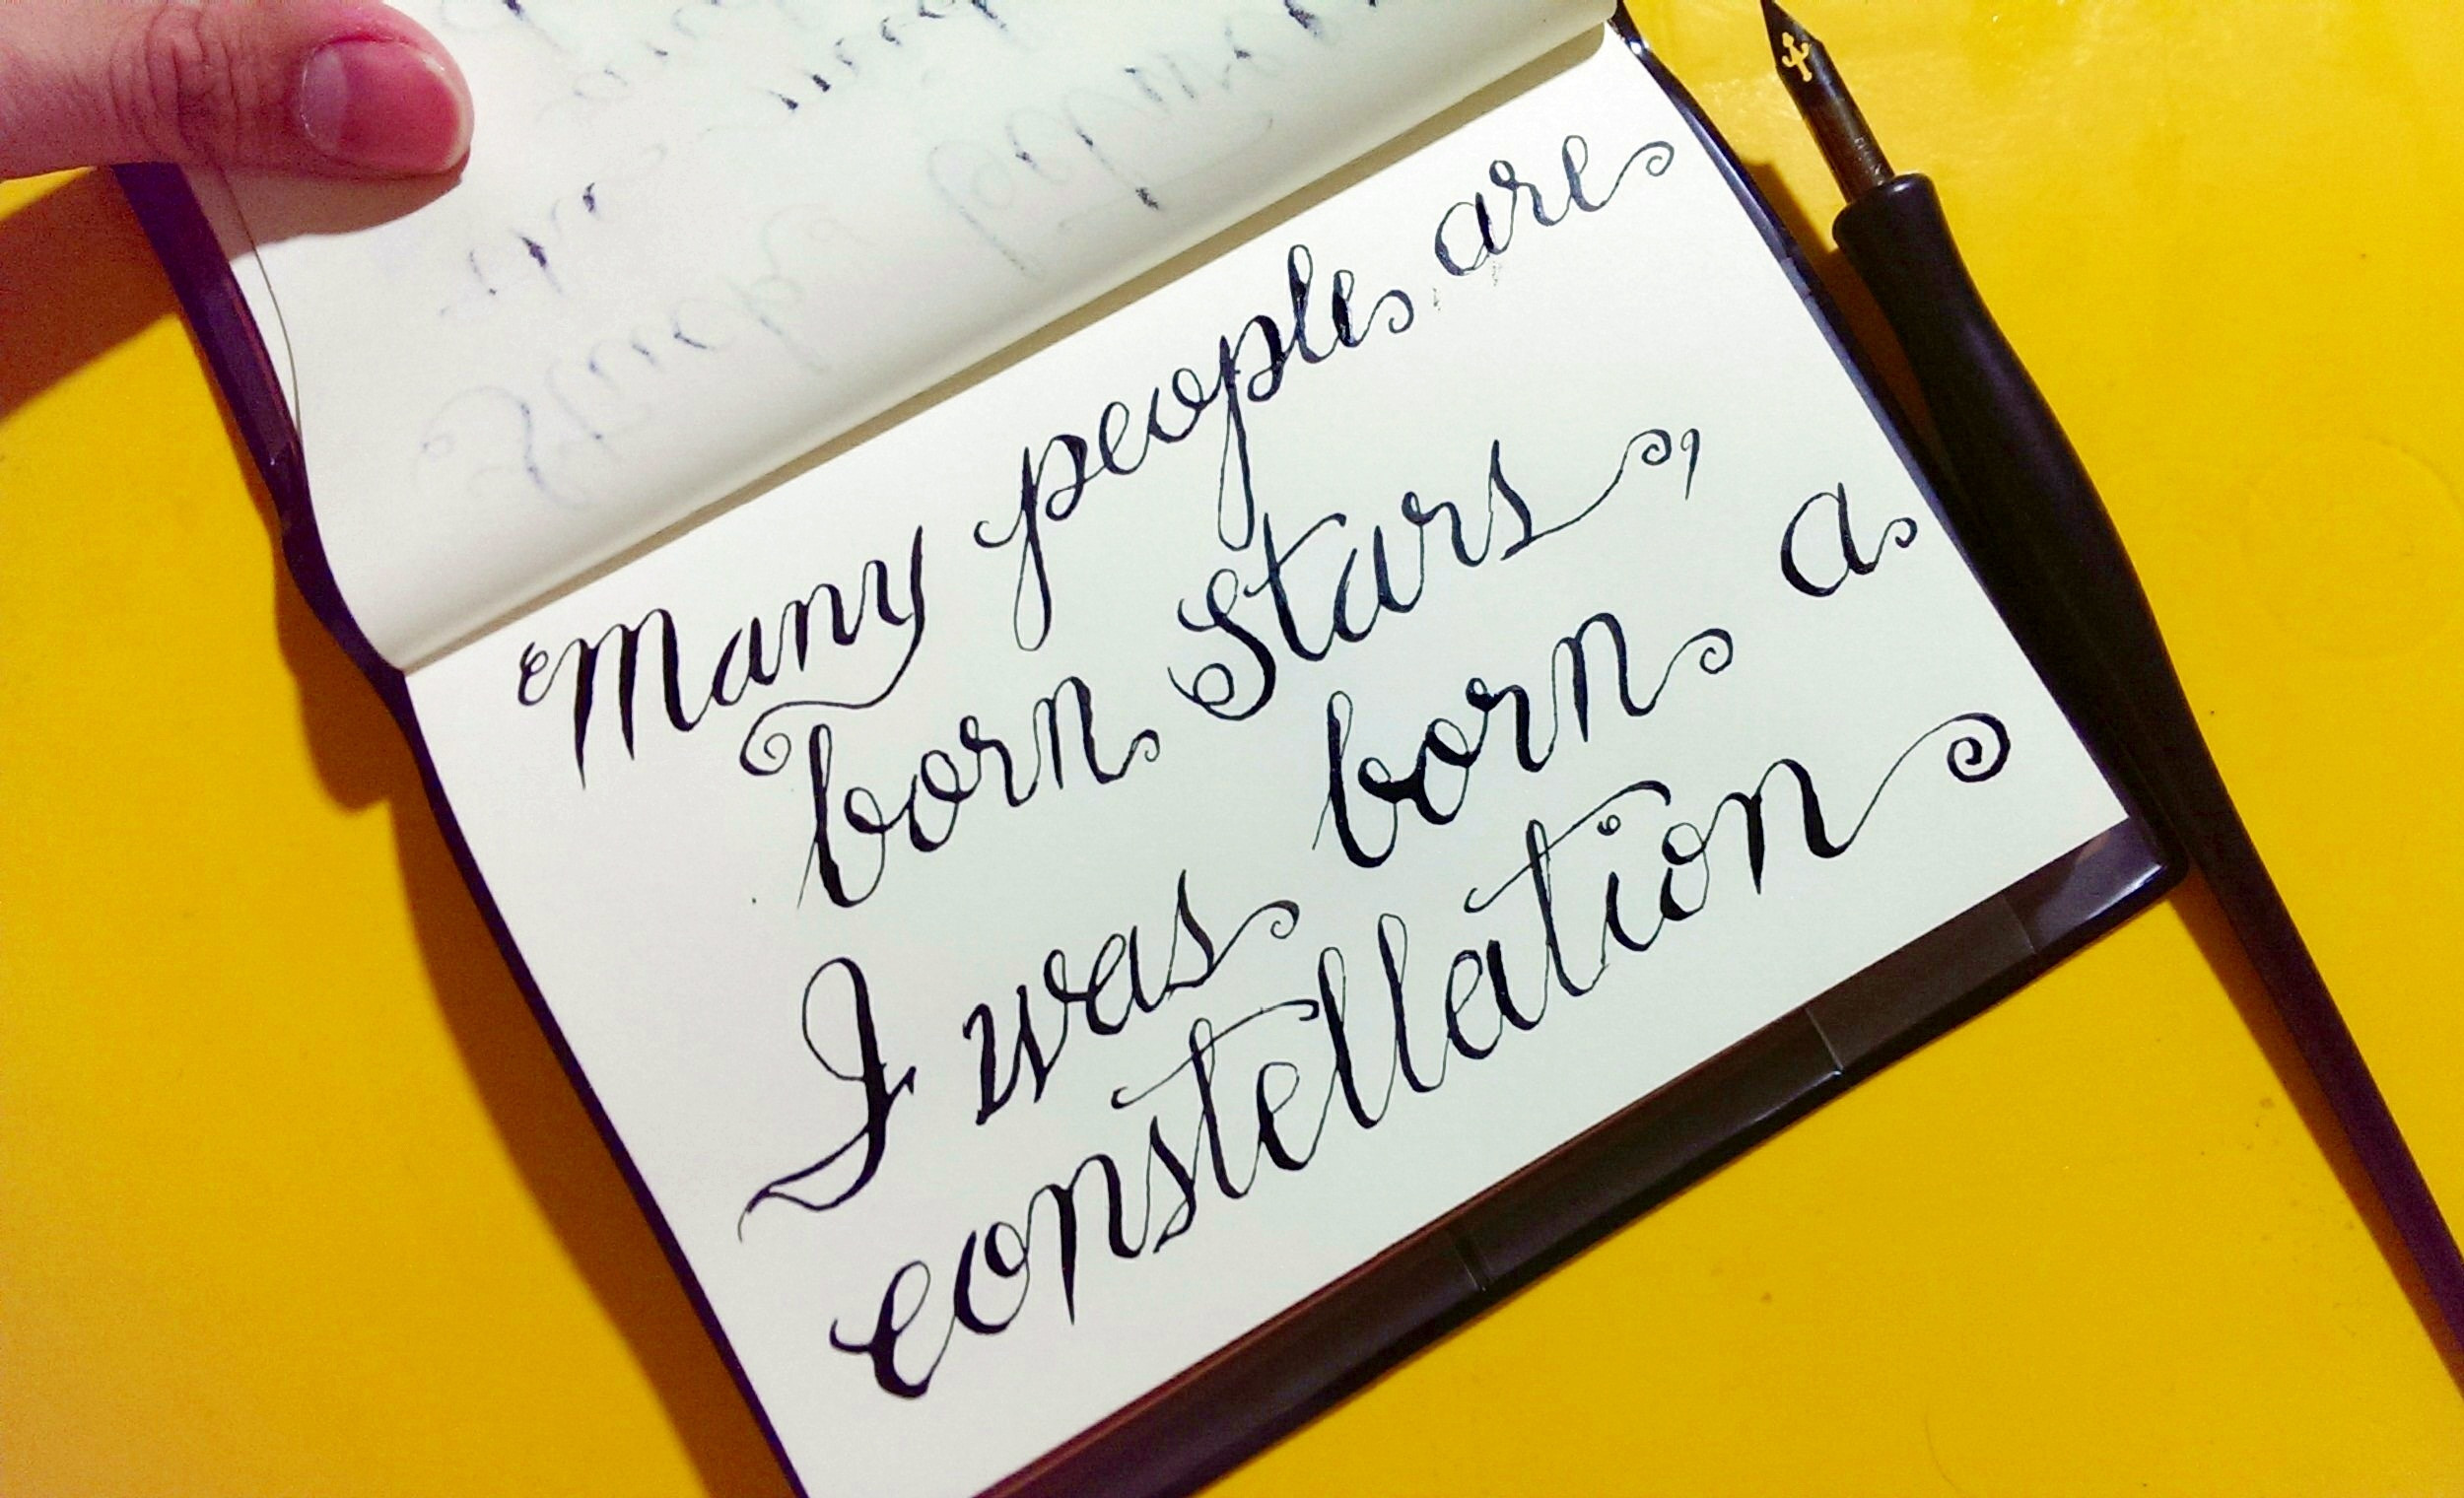 Many people are
born Stars,
I was born a
constellation